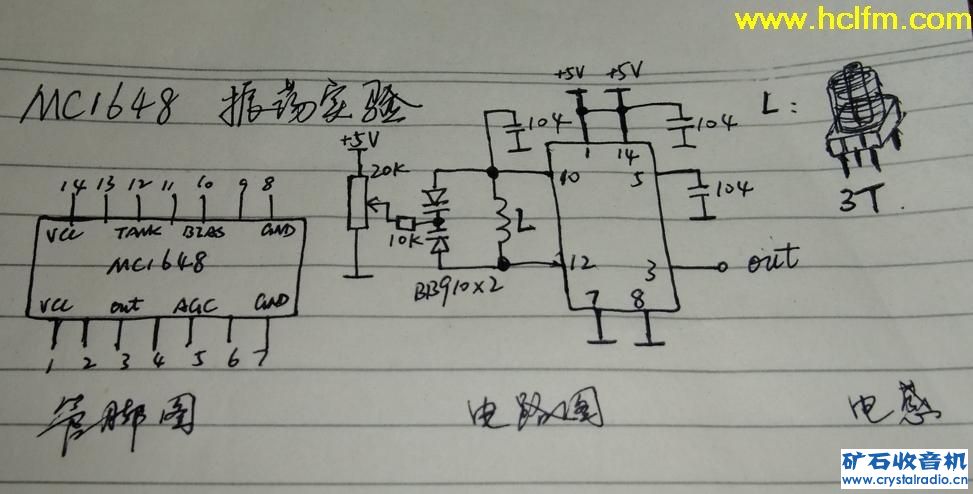 www.hclfm.com
MC1648 振荡实验
14 13 12 11 10 9 8
VCC TANK BIAS GND
MC1648
VCC out AGC GND
1 2 3 4 5 6 7
管脚图
+5V
20K
10K
BB910×2
L
104
+5V +5V
104
1 14
10 5
104
12 3
out
7 8
电路图
L:
3T.
电感
矿石收音机
www.crystalradio.cn